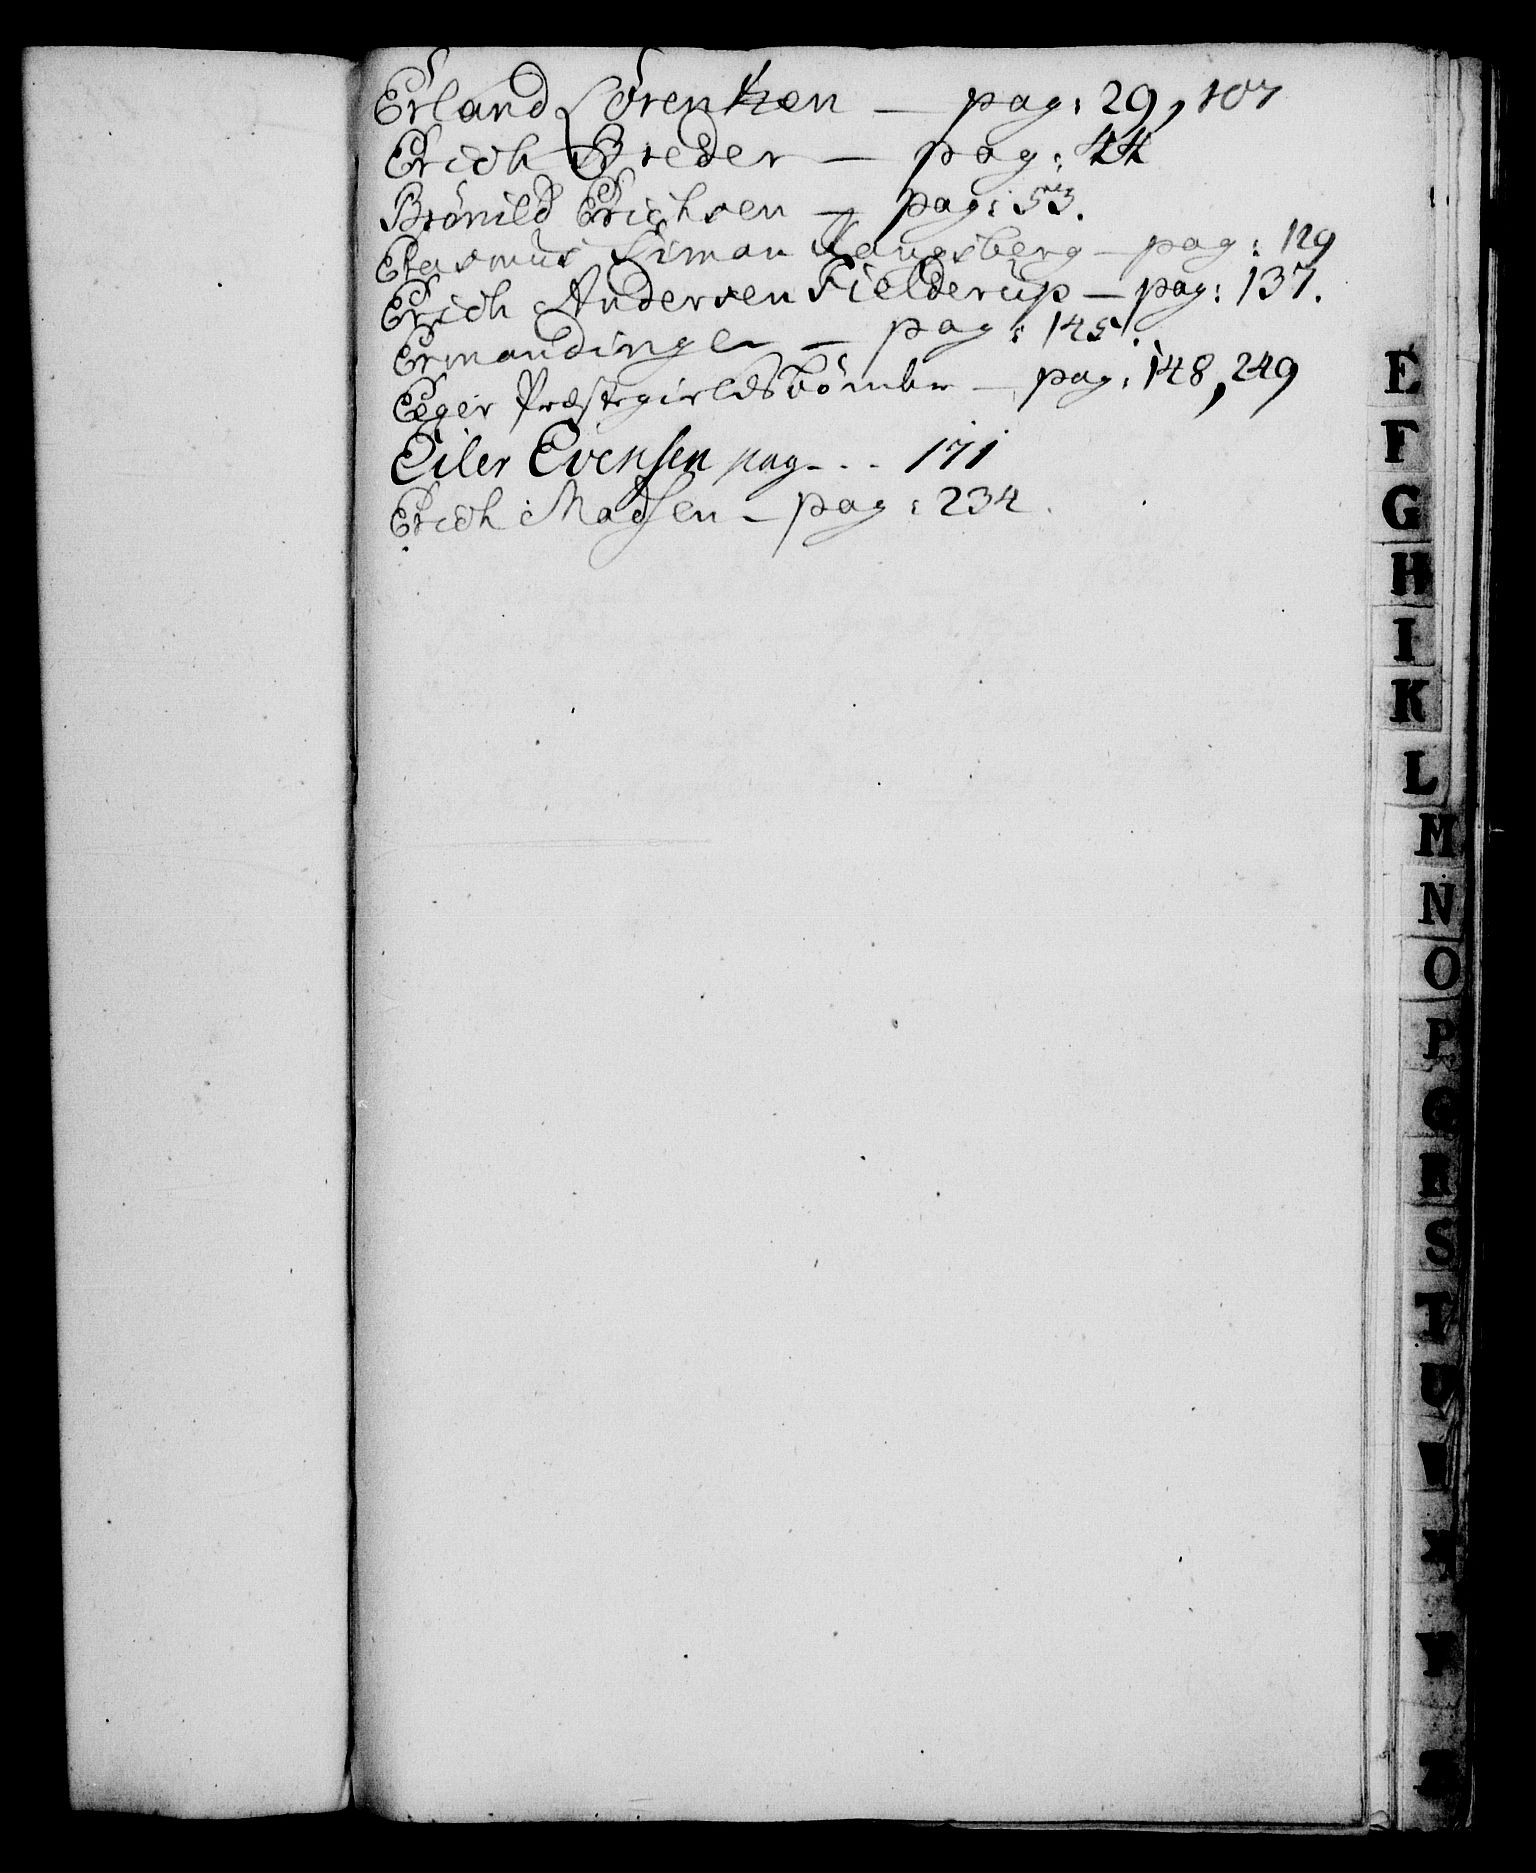 Erland Lörentzen — pag: 29, 107
Erich Breder — pag: 44
Brönild Erichsen — pag: 53.
Erasmus Simon Kangsberg — pag: 129
Erich Andersen Fielderup — pag: 137.
Ermandinger — pag: 145.
Eger Præstegieldsbönder — pag: 148, 249
Eiler Evensen pag - - - 171
Erich Madsen — pag: 234.
E
F
G
H
I
K
L
M
N
O
P
Q
R
S
T
U